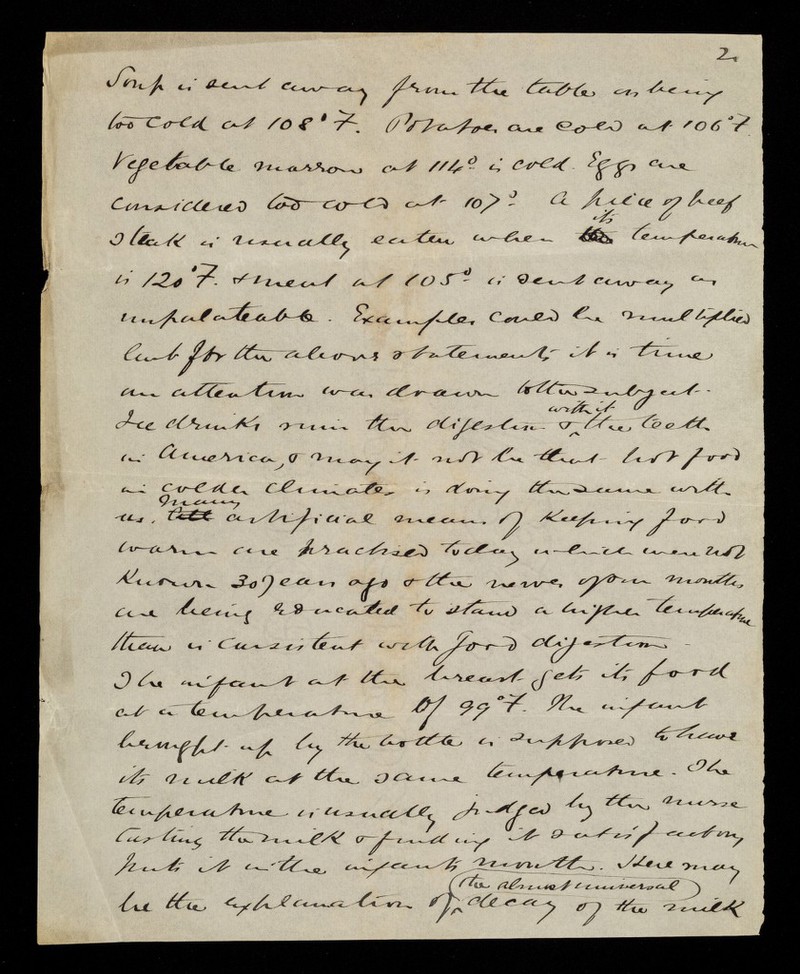 2.
Soup is sent away from the table as being
too cold at 108° F. Potatoes are cold at 106° F.
Vegetable marrow at 114° is cold. Eggs are
considered too cold at 107°. A piece of beef
its
steak is usually eaten when the temperature
is 120° F. & meat at 105° is sent away as
unpalateable. Examples could be multiplied
but for the above statements it is time
an attention was drawn to the subject.
with it
Ice drinks ruin the digestion & the teeth
in America, & may it not be that hot food
in colder climates is doing the same with
many
us. artificial means of keeping food
warm are practised today which were not
known 30 years ago & the nerves of our mouths
are being educated to stand a higher temperature
than is consistent with good digestion.
The infant at the breast gets its food
at a temperature of 99° F. The infant
brought up by the bottle is supposed to have
its milk at the same temperature. The
temperature is usually judged by the nurse
tasting the milk & finding it satisfactory
puts it in the infants mouth. Here may
(the almost universal)
be the explanation of decay of the milk